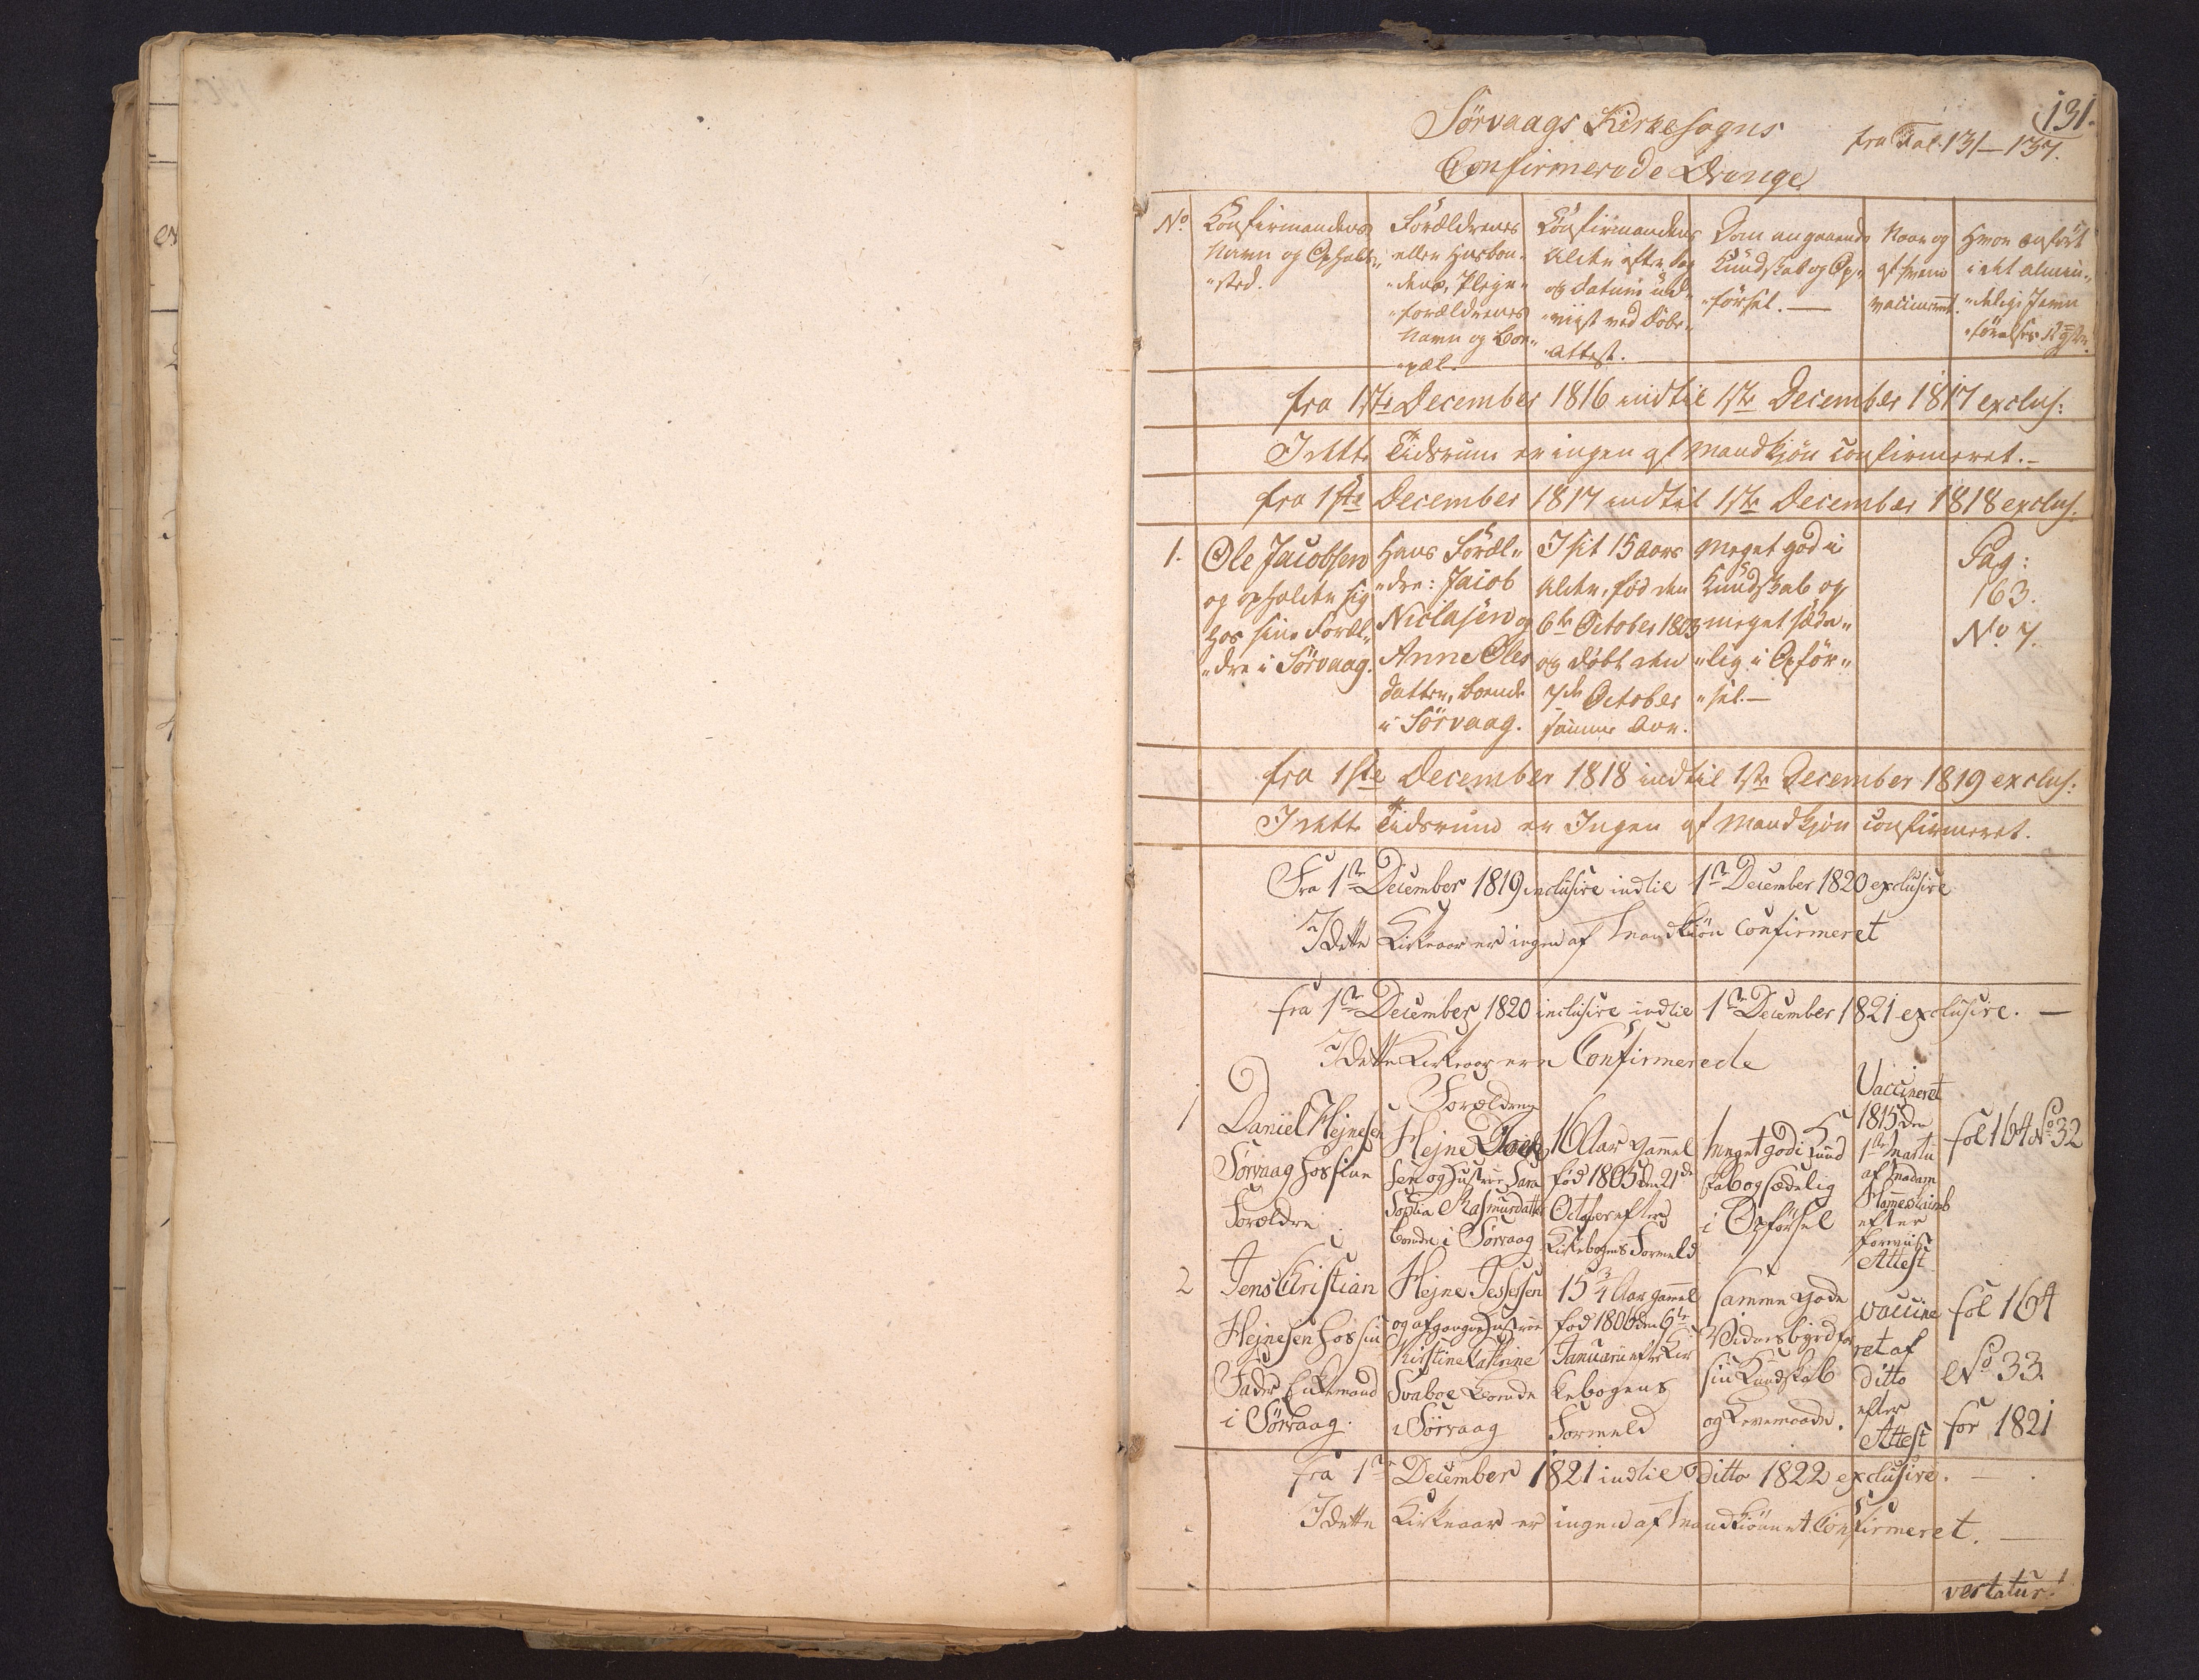 131.
Sörvaags Kirkesogns
fra Fol. 131–137.
Confirmerede Drenge
No
Confirmandens
Navn og Opholds„
„sted.
Forældrenes
eller Husbon„
„dens, Pleje„
„forældrenes
Navn og Boe„
„pæl.
Confirmandens
Alder efter Dag
og Datum ud„
„viist ved Döbe„
„Attest.
Dom angaaende
Kundskab og Op„
„försel. —
Naar og
af hvem
vaccineret.
Hvor anfört
i det almin„
„delige Jevn
„förelses Regster
fra 1ste December 1816 indtil 1ste December 1817 exclus:
I dette Tidsrum er ingen af Mandkjön confirmeret.–
fra 1ste December 1817 indtil 1ste December 1818 exclus.
1.
Ole Jacobsen
og opholder sig
hos sine Foræl„
„dre i Sörvaag.
Hans Foræl„
„dre: Jacob
Niclasen og
Anne Oles
datter, boende
i Sörvaag.
I sit 15 Aars
Alder, föd den
6te October 1803
og döbt den
7de October
samme Aar.
Meget god i
Kundskab og
meget sæde„
„lig i Opför„
„sel.—
Pag:
163.
No. 7.
fra 1ste December 1818 indtil 1ste December 1819 exclus:
I dette Tidsrum er Ingen af Mandkjön confirmeret.
Fra 1ste December 1819 inclusive indtil 1ste December 1820 exclusive
I dette Kirkeaar er ingen af Mandkiön Confirmeret
fra 1ste December 1820 inclusive indtil 1ste December 1821 exclusive. —
I dette Kirkeaar ere Confirmerede
1
Daniel Hejnesen
Sörvaag hos sine
Forældre
Forældrene
Hejne
sen og Hustrue Sara
Sophia Rasmusdatter
boende i Sörvaag
16 Aar gammel
föd 1805 den 21de
October efter
Kirkebogens Formeld
Meget god i Kund
skab og sædelig
i Opförsel
Vaccineret
1815 den
1ste Martii
af Madam
efter
forviist
Attest
fol 164 No 32
2
Jens Christian
Hejnesen hos sin
Fader Enkemand
i Sörvaag.
Hejne Jessesen
og afgangne Hustrue
Kirstine Cathrine
Svaboe boende
i Sörvaag
15 3/4 Aar gammel
föd 1806 den 6te
Januarii efter Kir
kebogens
Formeld
samme gode
Vidnesbyrd for
sin Kundskab
og Levemaade.
vaccine
ret af
ditto
efter
Attest
fol 164
No 33.
for 1821
fra 1ste December 1821 indtil ditto 1822 exclusive. —
I dette Kirkeaar er ingen af Mandkiönnet Confirmeret. —
vertatur!